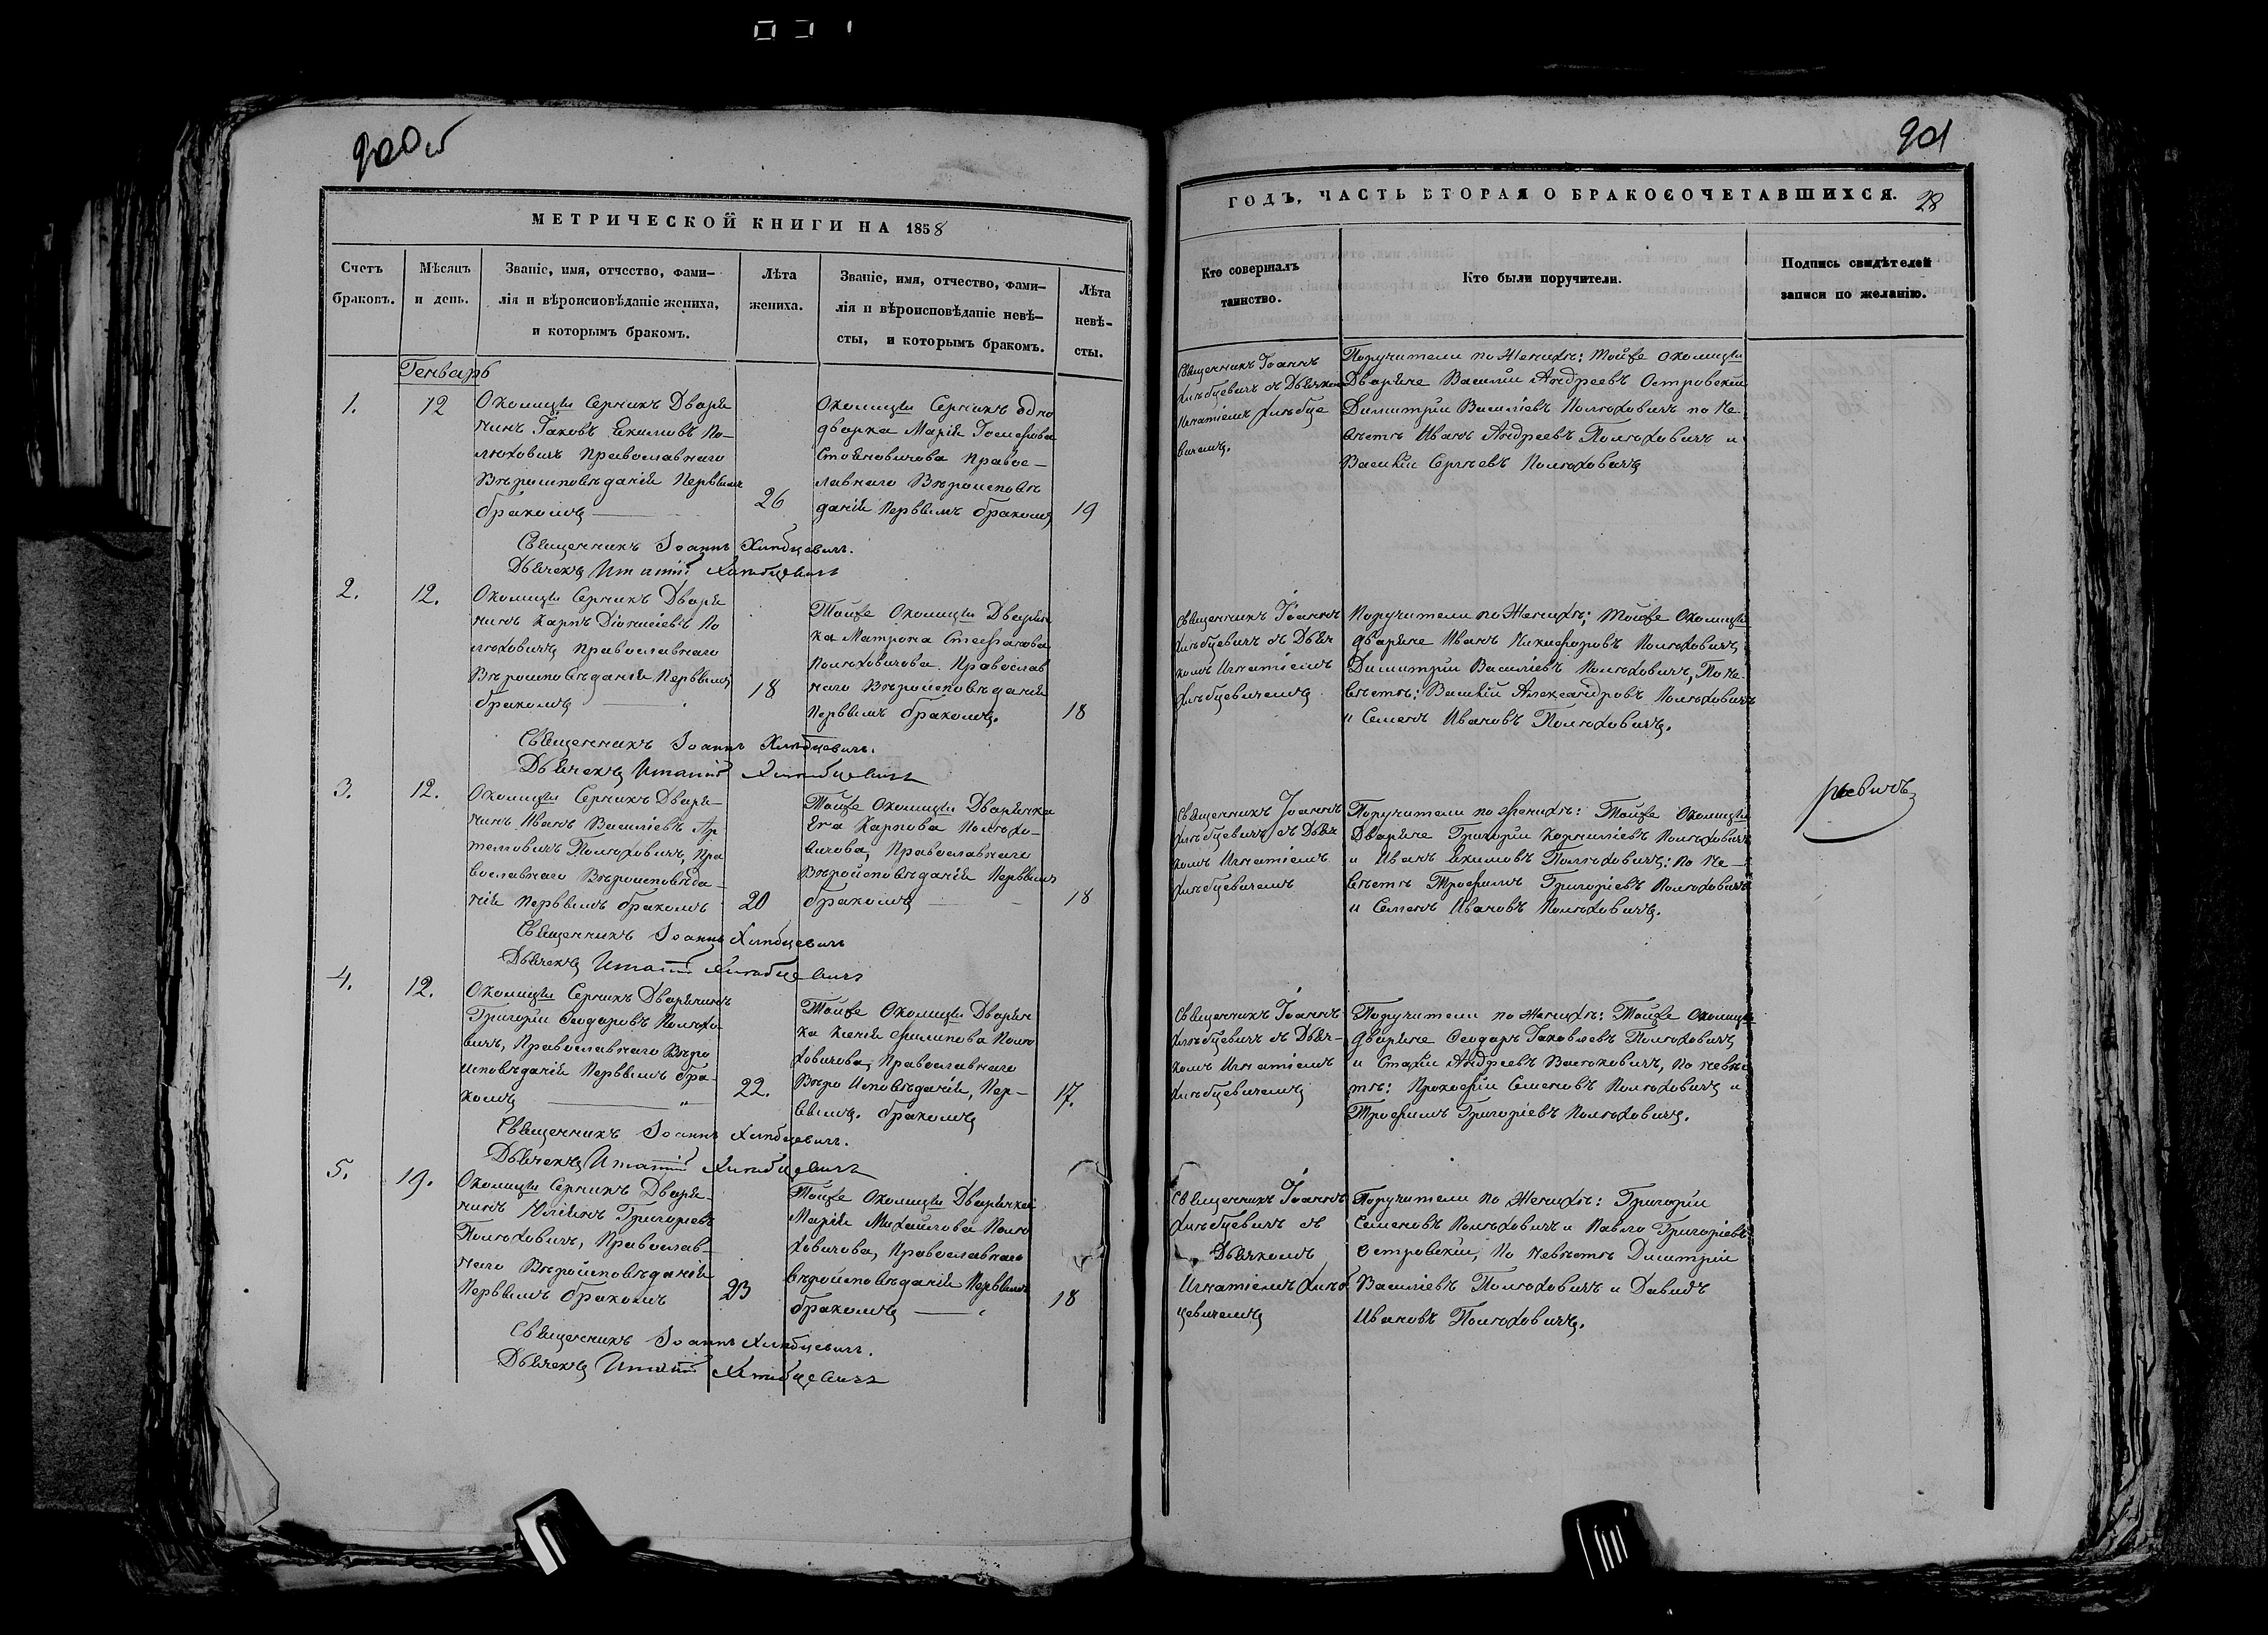 900 об
МЕТРИЧЕСКОЙ КНИГИ НА 1858
Счетъ браковъ.
Мѣсяцъ и день.
Званіе, имя, отчество, фами-
лія и вѣроисповѣданіе жениха,
и которымъ бракомъ.
Лѣта
жениха.
Званіе, имя, отчество, фами-
лія и вѣроисповѣданіе невѣ-
сты, и которымъ бракомъ.
Лѣта
невѣ-
сты.
Генварь
1.
12
Околицы Серникъ Дворя
нинъ Іаковъ Екимовъ По-
люховичъ Православнаго
Вѣроисповѣданія Первымъ
бракомъ
26
Околицы Серникъ одно
дворка Марія Іосифова
Стояновичова Правос-
лавнаго Вѣроисповѣ
данія Первымъ бракомъ
19
Священникъ Іоаннъ Хлѣбцевичъ.
Дьячекъ Игнатій Хлѣбцевичъ
2.
12.
Околицы Серникъ Дворя
нинъ Карпъ Діонисіевъ По
люховичъ Православнаго
Вѣроисповѣданія Первымъ
бракомъ
18
Тойже Околицы Дворян
ка Матрона Стефанова
Полюховичова Православ
наго Вѣроисповѣданія
Первымъ бракомъ.
18
Священникъ Іоаннъ Хлѣбцевичъ.
Дьячекъ Игнатій Хлѣбцевичъ
3.
12.
Околицы Серникъ Дворя-
нинъ Иванъ Василіевъ Ар
темовичъ Полюховичъ, Пра
вославнаго Вѣроисповѣда-
нія Первымъ бракомъ
20
Тойже Околицы Дворянка
Ева Карпова Полюхо-
вичова, Православнаго
Вѣроисповѣданія Первымъ
бракомъ
18
Священникъ Іоаннъ Хлѣбцевичъ
Дьячекъ Игнатій Хлѣбцевичъ
4.
12.
Околицы Серникъ Дворянинъ
Григорій Феодоровъ Полюхо-
вичъ, Православнаго Вѣро
исповѣданія Первымъ бра-
комъ
22.
Тойже Околицы Дворян
ка Ксенія Филипова Полю
ховичова, Православнаго
Вѣро Исповѣданія, Пер-
вымъ. бракомъ
17.
Священникъ Іоаннъ Хлѣбцевичъ.
Дьячекъ Игнатій Хлѣбцевичъ
5.
19.
Околицы Серникъ Дворя-
нинъ Юліянъ Григоріевъ
Полюховичъ, Православ-
наго Вѣроисповѣданія
Первымъ бракомъ
23
Тойже Околицы Дворянка
Марія Михайлова Полю
ховичова, Православнаго
вѣроисповѣданія Первымъ
бракомъ
18
Священникъ Іоаннъ Хлѣбцевичъ.
Дьячекъ Игнатій Хлѣбцевичъ
901
28
ГОДЪ, ЧАСТЬ ВТОРАЯ О БРАКОСОЧЕТАВШИХСЯ.
Кто совершалъ
таинство.
Кто были поручители.
Подпись свидѣтелей
записи по желанію.
Священникъ Іоаннъ
Хлѣбцевичъ съ Дьячкомъ
Игнатіемъ Хлѣбце
вичемъ.
Поручители по Женихѣ: тойже околицы
Дворяне Василій Андреевъ Островскій
Димитрій Василіевъ Полюховичъ по Не-
вѣстѣ Иванъ Андреевъ Полюховичъ и
Василій Сергѣевъ Полюховичъ
Священникъ Іоаннъ
Хлѣбцевичъ съ Дьяч
комъ Игнатіемъ
Хлѣбцевичемъ
Поручители по Женихѣ; тойже Околицы
дворяне Иванъ Никифоровъ Полюховичъ
Димитрій Василіевъ Полюховичъ, По Не-
вѣстѣ: Василій Александровъ Полюховичъ
и Семенъ Ивановъ Полюховичъ.
Священникъ Іоаннъ
Хлѣбцевичъ съ Дьяч
комъ Игнатіемъ
Хлѣбцевичемъ
Поручители по Женихѣ: Тойже Околицы
Дворяне Григорій Корниліевъ Полюховичъ
и Иванъ Екимовъ Полюховичъ; по Не-
вѣстѣ Трофимъ Григоріевъ Полюховичъ
и Семенъ Ивановъ Полюховичъ.
Священникъ Іоаннъ
Хлѣбцевичъ съ Дьяч-
комъ Игнатіемъ
Хлѣбцевичемъ
Поручители по Женихѣ: Тойже Околицы
дворяне Феодоръ Іаковлевъ Полюховичъ
и Стахій Андреевъ Васюховичъ, По невѣс
тѣ: Прокофій Семеновъ Полюховичъ и
Трофимъ Григоріевъ Полюховичъ.
Священникъ Іоаннъ
Хлѣбцевичъ съ
Дьячкомъ
Игнатіемъ Хлѣб
цевичемъ
Поручители по Женихѣ: Григорій
Семеновъ Полюховичъ и Павло Григоріевъ
Островскій, По Невѣстѣ Дмитрій
Василіевъ Полюховичъ и Давидъ
Ивановъ Полюховичъ.
ревичъ